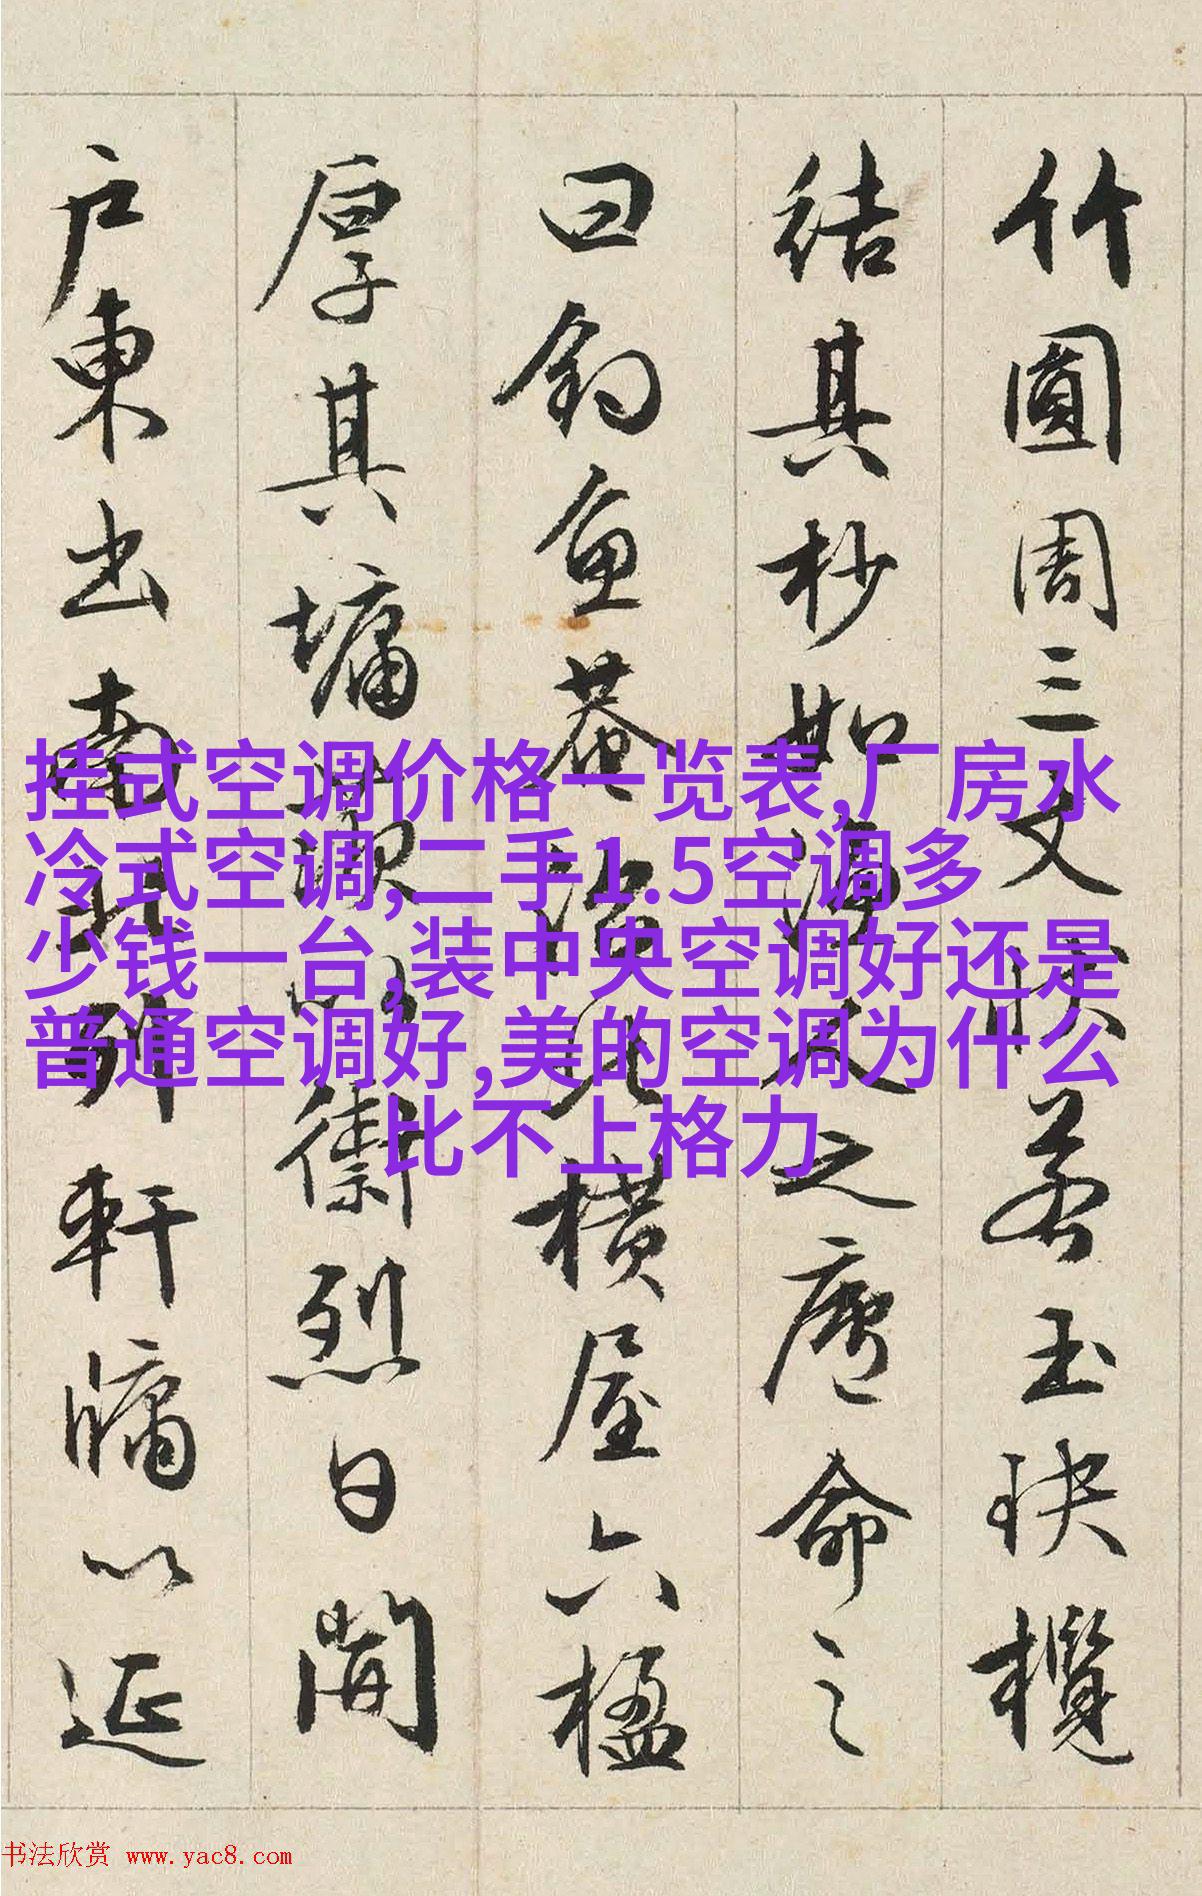 竹圓周三丈状若玉玦榄
结其杪如
之廬命之
曰钓鱼菴
横屋六楹
厚其墉
衛烈日開
户東出南
軒牖以延
挂式空调价格一览表,厂房水
冷式空调,二手1.5空调多
少钱一台,装中央空调好还是
普通空调好,美的空调为什么
比不上格力
书法欣赏 www.yac8.com